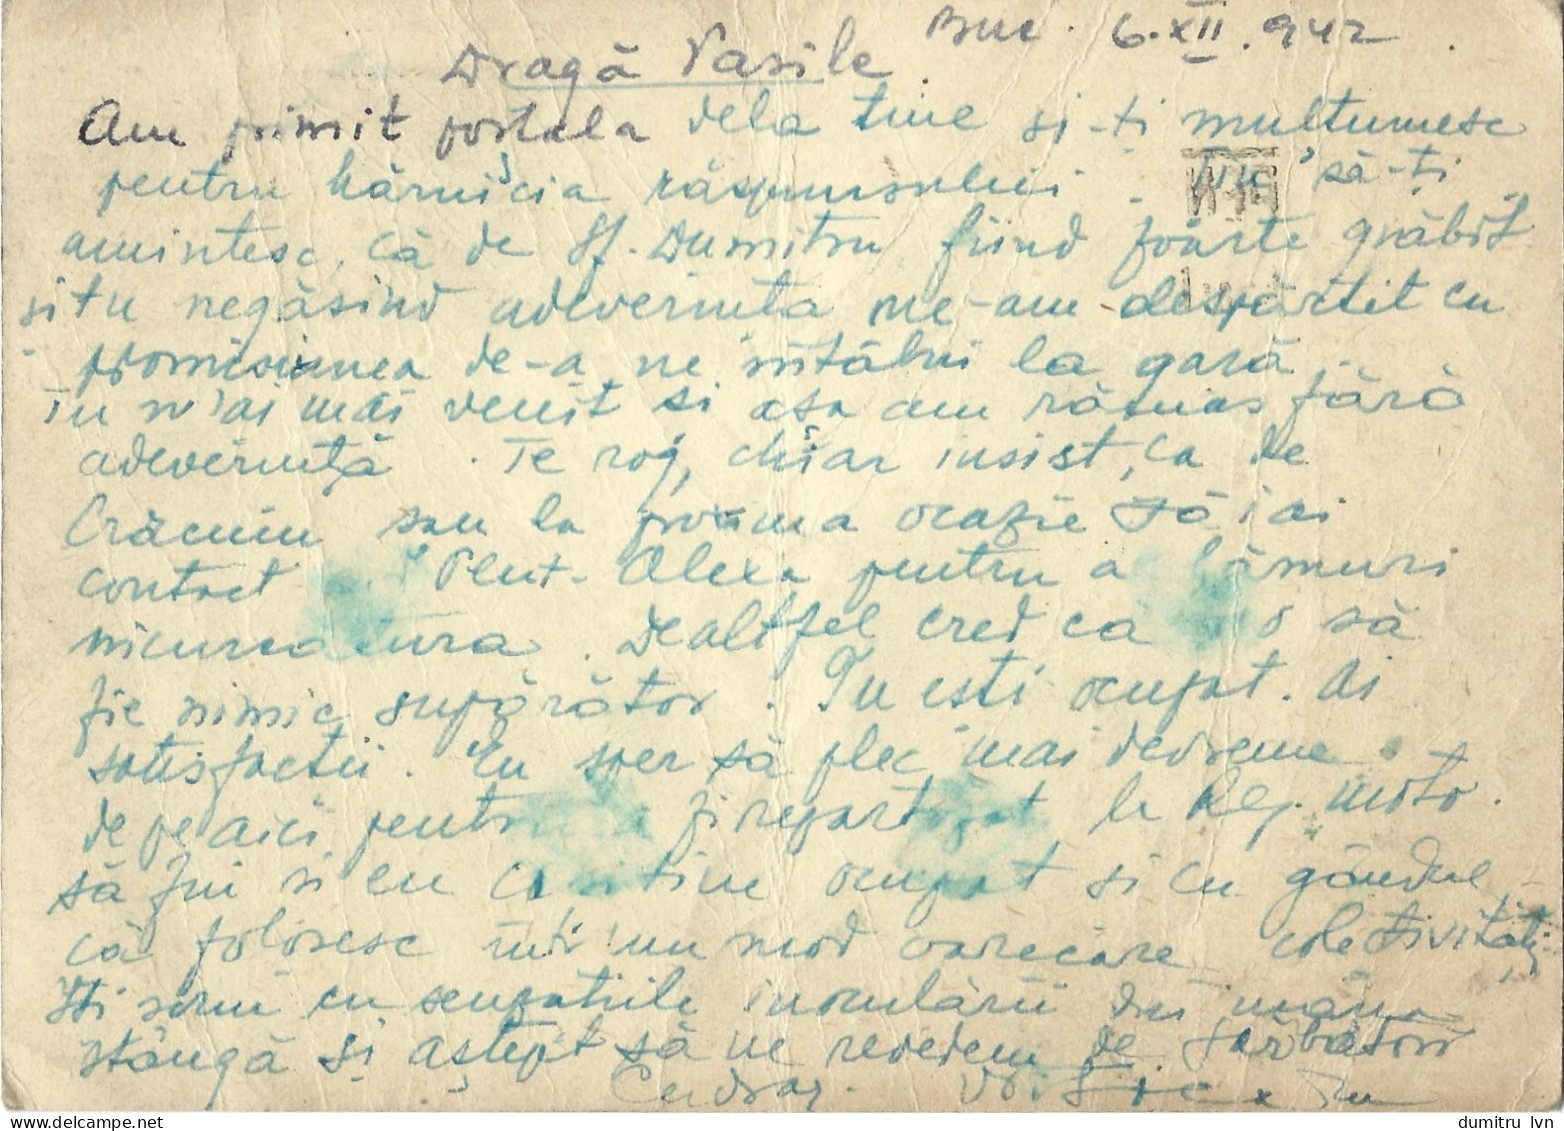 Buc. 6.XII.942
Dragă Vasile
Am primit postala dela tine și-ți multumesc
pentru hărnicia răspunsului. să-ți
amintesc, că de Sf. Dumitru fiind foarte grăbit
si tu negăsind adeverința ne-am despărtit cu
promisiunea de-a ne întâlni la gară.
Tu n'ai mai venit si asa am rămas fără
adeverință. Te rog, chiar insist, ca de
Crăciun sau la proxima ocazie să iai
contact Plut. Alexa pentru a lămuri
încurcatura. Dealtfel cred că să
fie nimic supărător. Tu esti ocupat. Ai
satisfactii. Eu sper să plec mai devreme
de pe aici pentru a fi repartizat la Reg. moto.
să fiu si eu cât ocupat și cu gândul
că folosesc într'un mod oarecare colectivităti
Iti scriu cu senzatiile inoculării din mâna
stângă și aștept să ne revedem de sărbători
Cu drag.